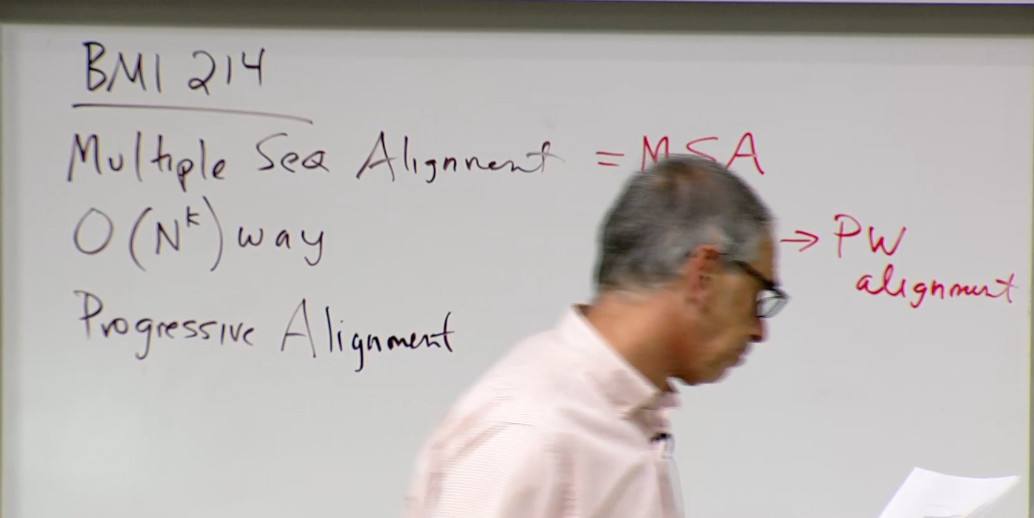 BMI 214
Multiple Seq Alignment = MSA
O(N^k) way → PW
alignment
Progressive Alignment